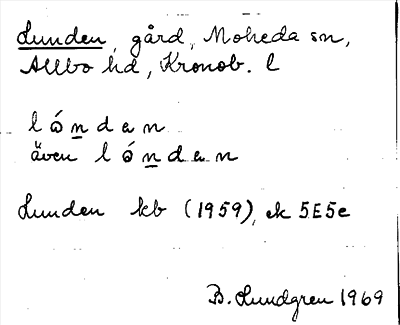 Lunden, gård, Moheda sn,
Allbo hd, Kronob. l
lón̲dan
även lón̲dan
Lunden kb (1959), ek 5E5e
B. Lundgren 1969